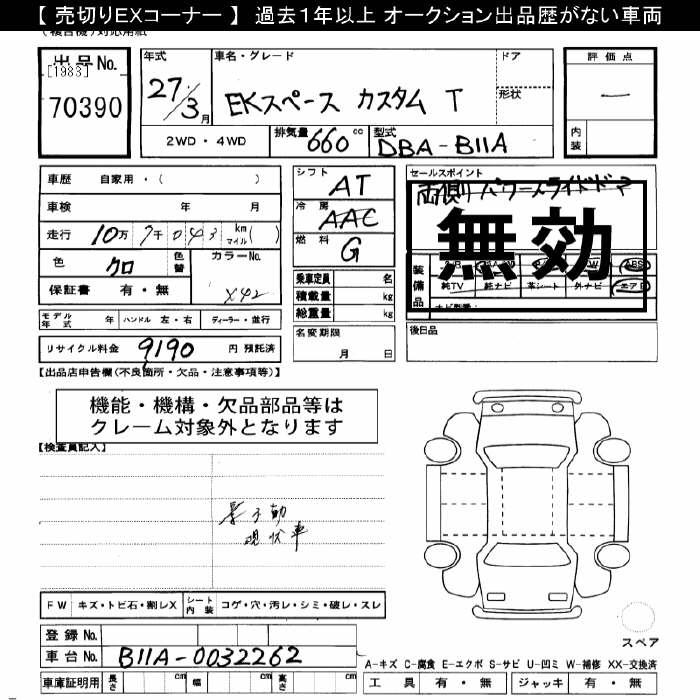 【 売切りEXコーナー 】 過去１年以上 オークション出品歴がない車両
出品No.
[1983]
70390
年式
27/3月
車名・グレード
EKスペース カスタム T
ドア
形状
評価点
ー
内装
2WD・4WD
排気量 660 cc
型式 DBA-B11A
車歴 自家用・( )
車検 年 月
走行 10万7千043 km マイル ( )
色 クロ 色替
カラーNo. X42
保証書 有・無
シフト AT
冷房 AAC
燃料 G
乗車定員 名
積載量 kg
総重量 kg
名変期限
月 日
セールスポイント
両側パワースライドドア
無効
装備品
ABS
純TV 純ナビ 革シート 外ナビ エアB
ナビ型番:
後日品
モデル年式 年 ハンドル 左・右 ディーラー・並行
リサイクル料金 9190 円 預託済
【出品店申告欄(不良箇所・欠品・注意事項等)】
機能・機構・欠品部品等は
クレーム対象外となります
【検査員記入】
現状車
FW キズ・トビ石・割レX シート内装 コゲ・穴・汚レ・シミ・破レ・スレ
登録 No.
車台 No. B11A-0032262
車庫証明用 長さ cm 幅 cm 高さ cm
スペア
A-キズ C-腐食 E-エクボ S-サビ U-凹ミ W-補修 XX-交換済
工具 有・無 ジャッキ 有・無